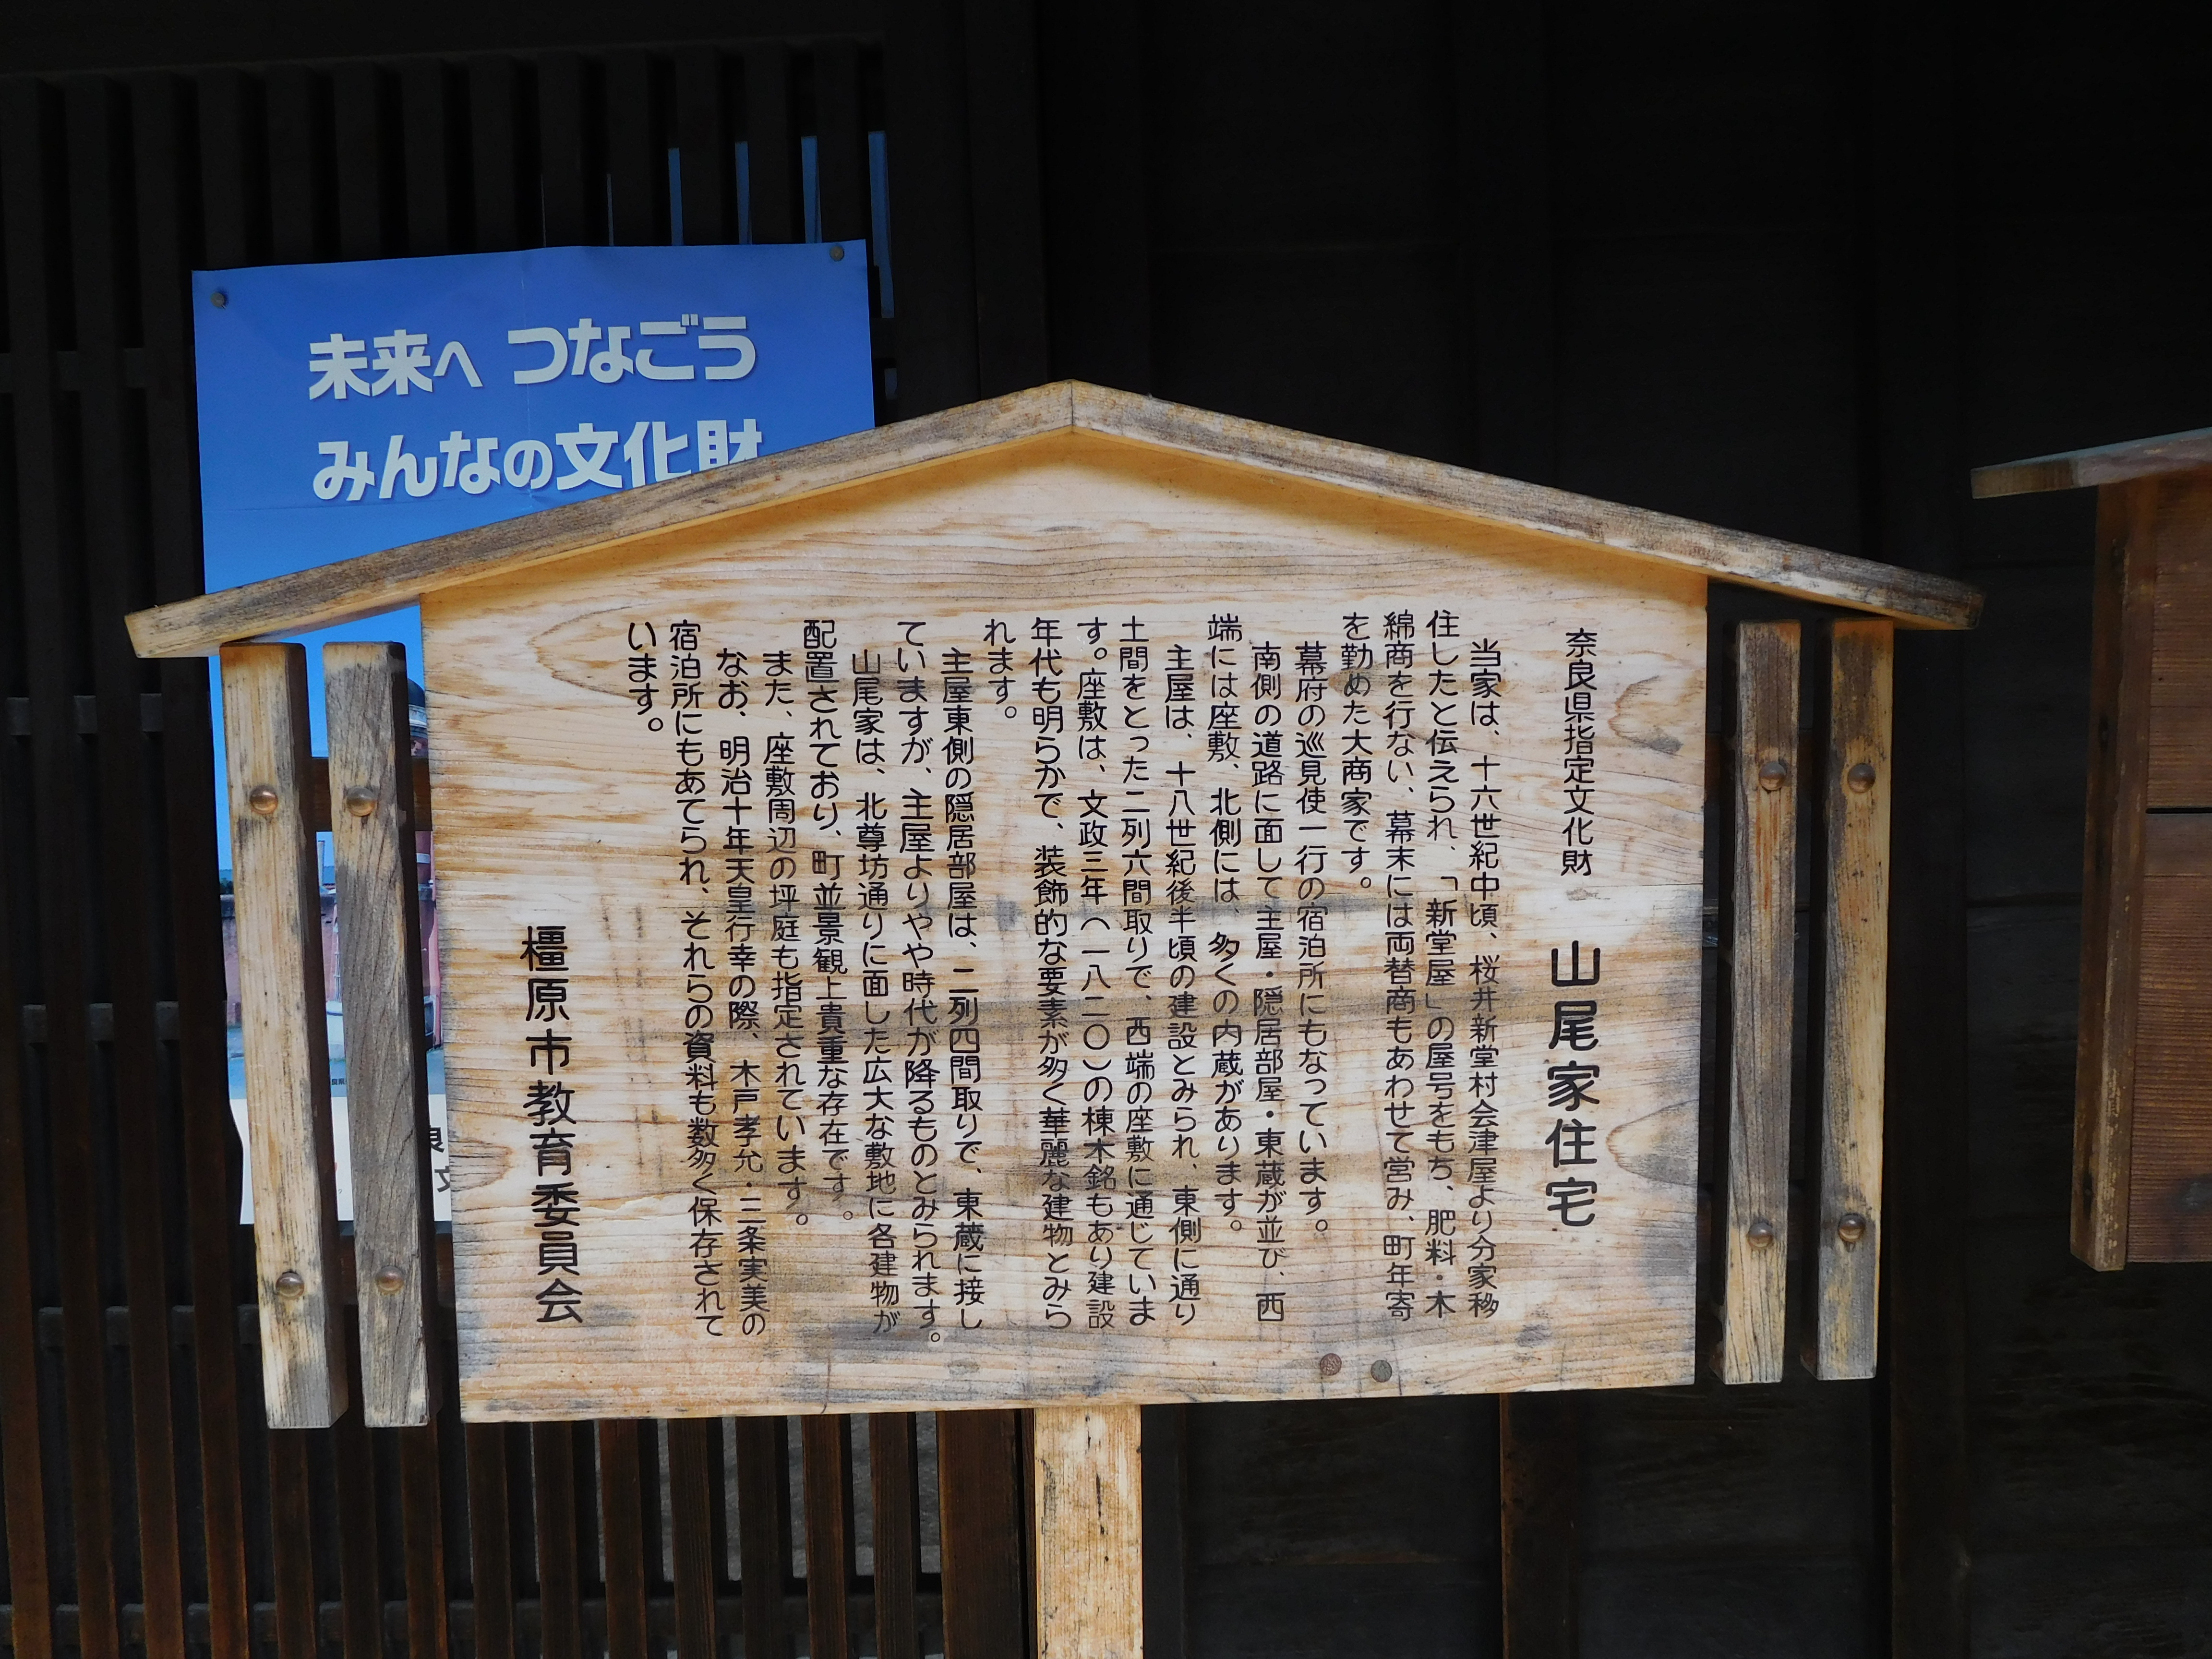 未来へ つなごう
みんなの文化財
奈良県指定文化財 山尾家住宅
当家は、十六世紀中頃、桜井新堂村会津屋より分家移
住したと伝えられ、「新堂屋」の屋号をもち、肥料・木
綿商を行ない、幕末には両替商もあわせて営み、町年寄
を勤めた大商家です。
幕府の巡見使一行の宿泊所にもなっています。
南側の道路に面して主屋・隠居部屋・東蔵が並び、西
端には座敷、北側には、多くの内蔵があります。
主屋は、十八世紀後半頃の建設とみられ、東側に通り
土間をとった二列六間取りで、西端の座敷に通じていま
す。座敷は、文政三年(一八二〇)の棟木銘もあり建設
年代も明らかで、装飾的な要素が多く華麗な建物とみら
れます。
主屋東側の隠居部屋は、二列四間取りで、東蔵に接し
ていますが、主屋よりやや時代が降るものとみられます。
山尾家は、北尊坊通りに面した広大な敷地に各建物が
配置されており、町並景観上貴重な存在です。
また、座敷周辺の坪庭も指定されています。
なお、明治十年天皇行幸の際、木戸孝允・三条実美の
宿泊所にもあてられ、それらの資料も数多く保存されて
います。
橿原市教育委員会